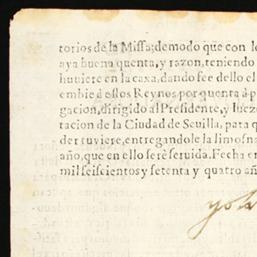 torios de la Missa; de modo que con le
aya buena quenta, y razon, teniendo
huviere en la caxa, dando fee dello el
embie à estos Reynos por quenta à p
gacion, dirigido al Presidente, y Iuez
tacion de la Ciudad de Sevilla, para q
der tuviere, entregandole la limosna
año, que en ello serè servida. Fecha en
mil seiscientos y setenta y quatro añ
yo la